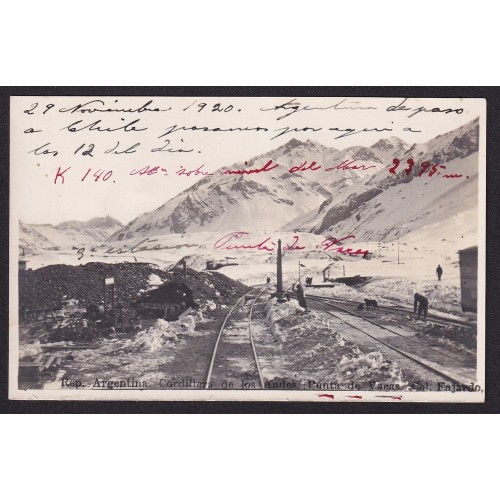 29 Noviembre 1920. Argentina de paso
a Chile pasamos por aqui a
las 12 del dia.
K 140. Atª sobre nivel del Mar 2395 m.
Punta de Vacas
Rep. Argentina. Cordillera de los Andes Punta de Vacas. Col. Fajardo.